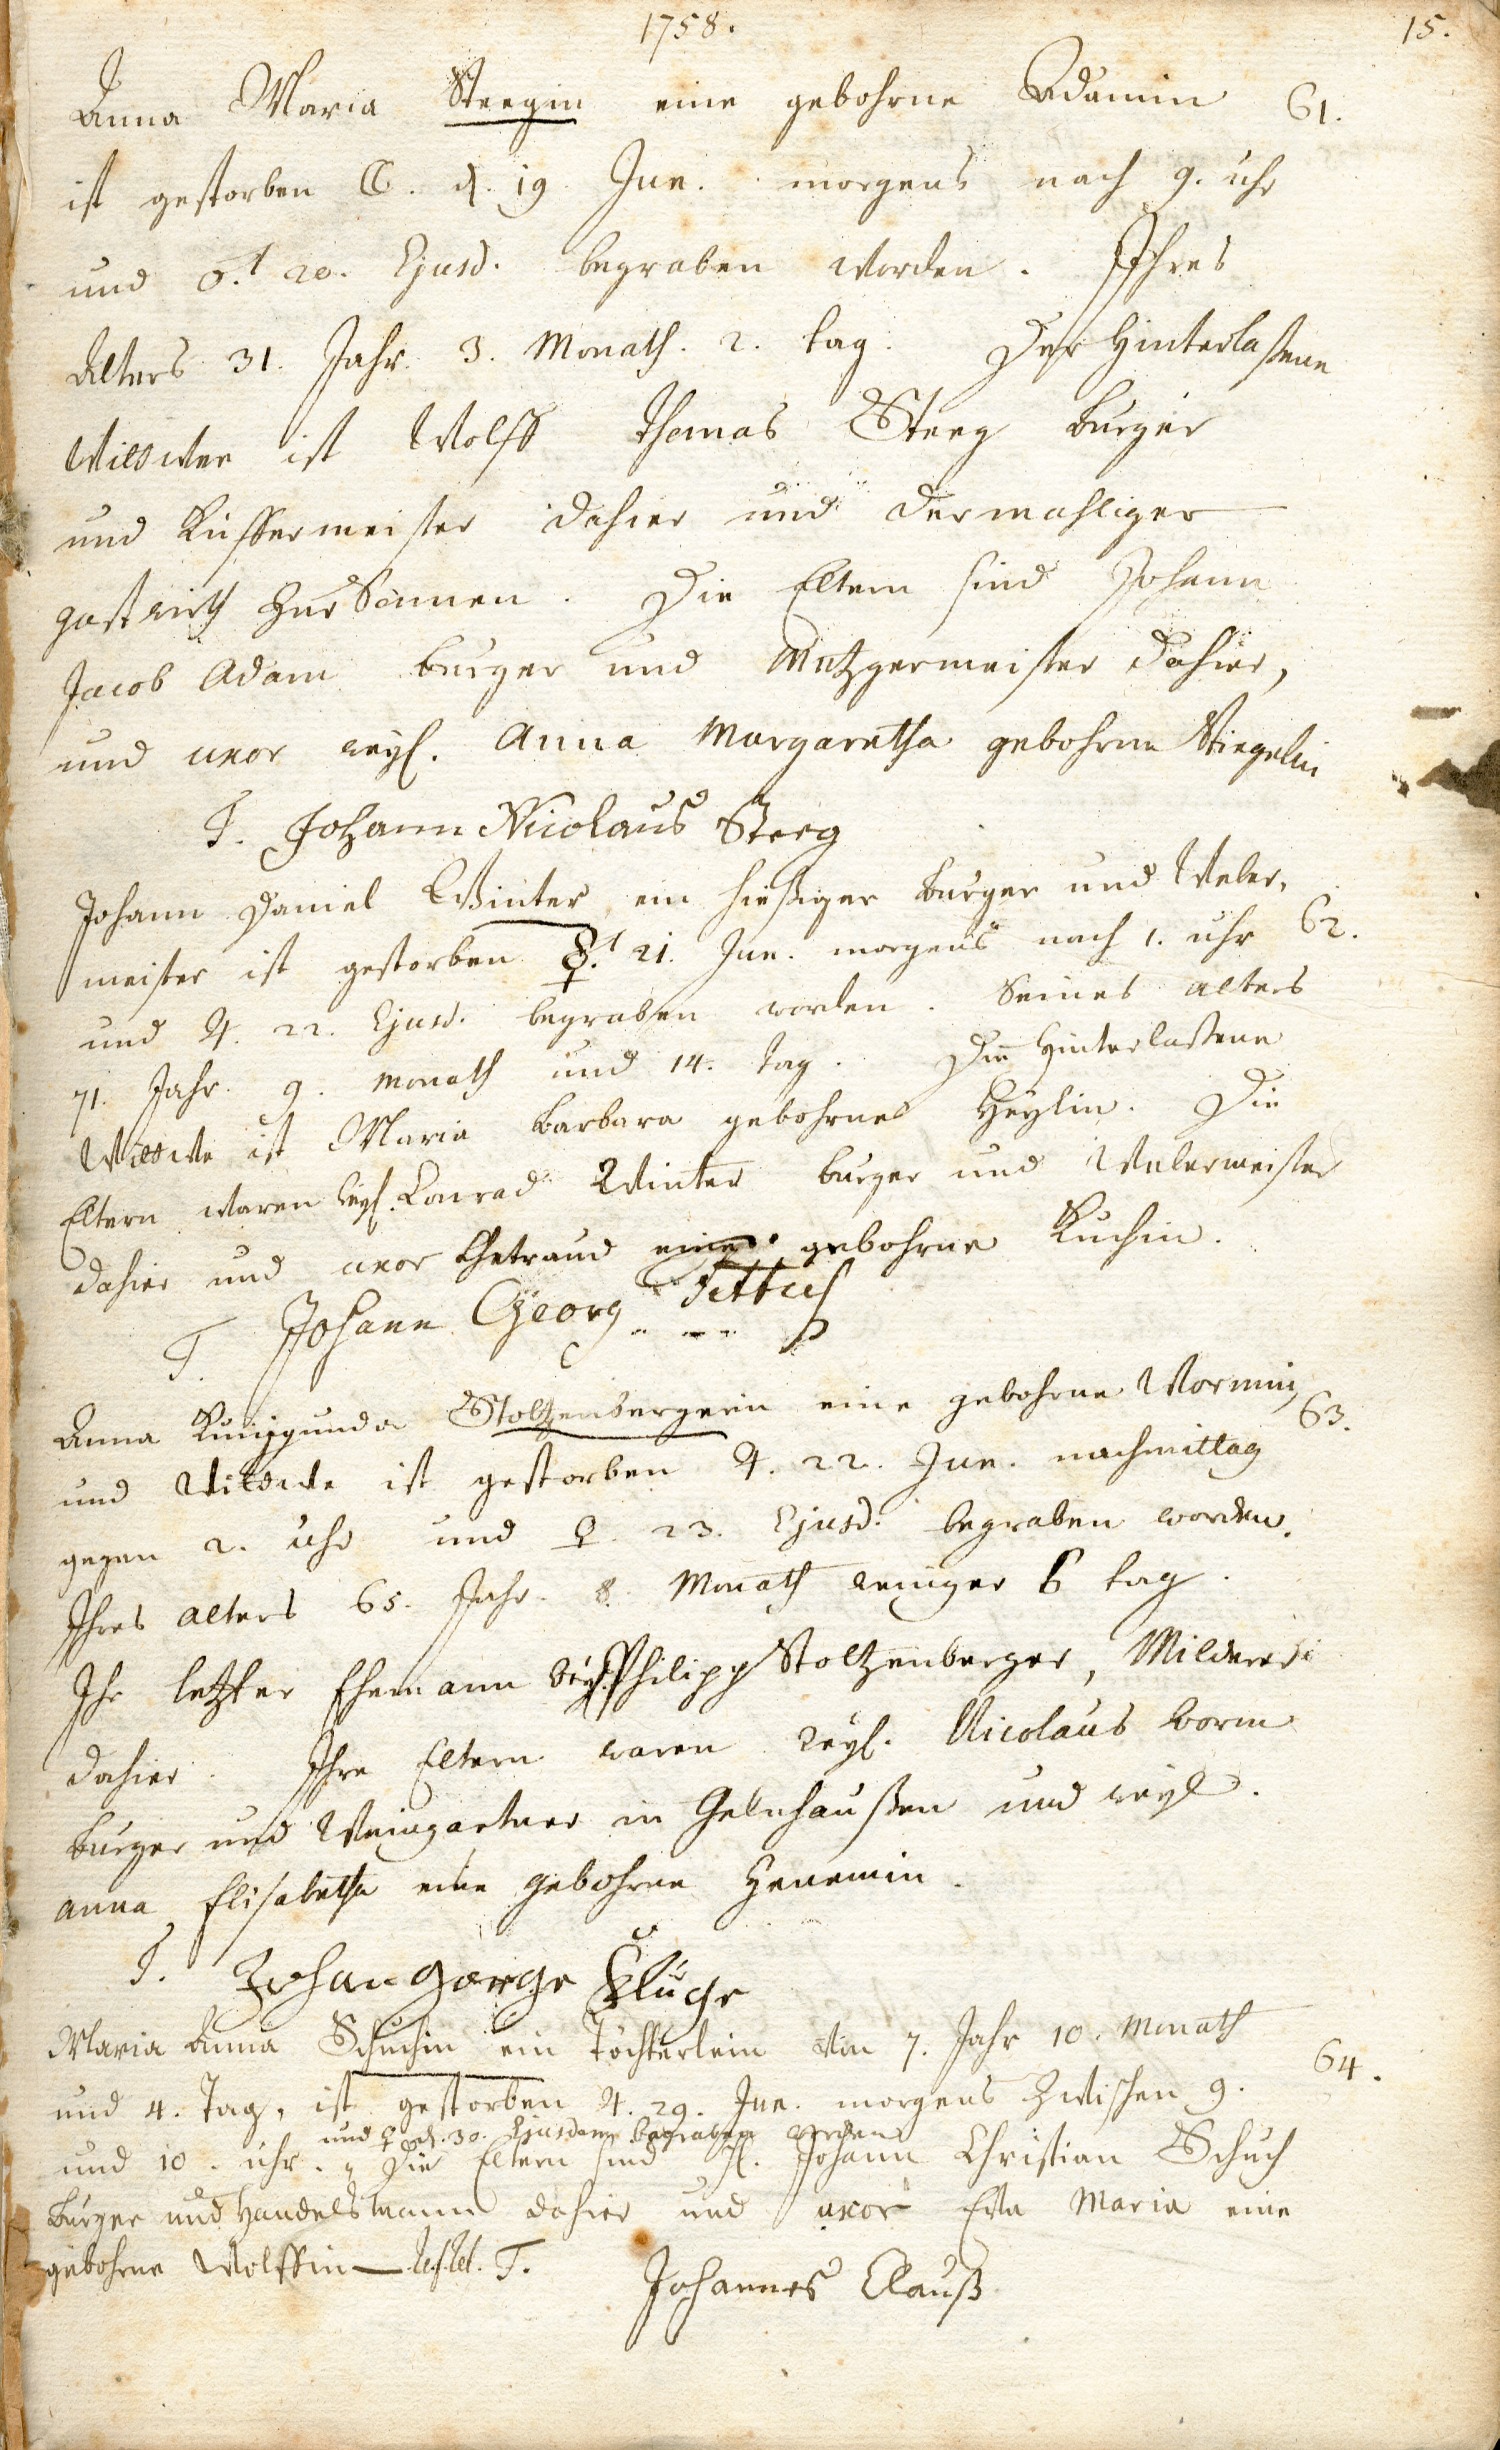 1758. 15.
Anna Maria Steegin eine gebohrne Adamin 61.
ist gestorben ☾. d. 19. Jun. morgens nach 9. uhr
und ♂. d. 20. Ejusd. begraben worden. Ihres
Alters 31. Jahr. 3. Monath. 2. tag. Der Hinterlaßene
Wittwer ist Wolff Thomas Steeg burger
und Küffermeister dahier und dermahliger
gastwirth zur Sonnen. Die Eltern sind Johann
Jacob Adam burger und Metzgermeister dahier,
und uxor weyl. Anna Margaretha gebohrne Stiegelin
T. Johann Nicolaus Steeg
Johann Daniel Winter, ein hießiger burger und Weber,
meister ist gestorben ☿. d. 21. Jun. morgens nach 1. uhr 62.
und ♃. 22. Ejusd. begraben worden. Seines alters
71. Jahr. 9. Monath und 14. tag. Die Hinterlaßene
Wittwe ist Maria Barbara gebohrne Heylin. Die
Eltern waren weyl. Conrad Winter burger und Webermeister
dahier und uxor gebohrne Kuchin.
T. Johann Georg Fettus
Anna Kunigunda Stoltzenbergerin eine gebohrne Wormin, 63.
und Wittwe ist gestorben ♃. 22. Jun. nachmittag
gegen 2. uhr und ♀. 23. Ejusd. begraben worden.
Ihres alters 65. Jahr. 8. Monath weniger 6 tag.
Ihr letzter Ehemann weyl. Philipp Stoltzenberger,
dahier. Ihre Eltern waren weyl. Nicolaus Worm
burger und Weingartner in Gelnhaußen und weyl.
anna Elisabetha eine gebohrne
T. Johan Gorge Kluge
Maria Anna Schuchin ein Töchterlein von 7. Jahr 10. Monath
und 4. Tag, ist gestorben ♃. 29. Jun. morgens zwischen 9. 64.
und ♀ d. 30. Ejusdem begraben worden
und 10. uhr. Die Eltern sind H. Johann Christian Schuch
Burger und Handelsmann dahier und uxor Eva Maria eine
gebohrne Wolffin — T. Johannes Clauß